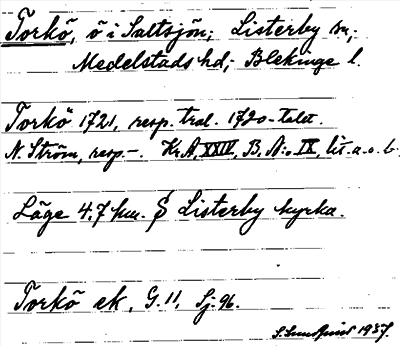 Torkö, ö i Saltsjön; Listerby sn,-
Medelstads hd,- Blekinge l.
Torkö 1721, resp. tral. 1720-talet.
N. Ström, resp.-. Kr. A, XXIV, B, N:o IX, lit. a. o. b.
Läge 4,7 km. S Listerby kyrka.
Torkö ek, G. 11, Sj. 96.
1937.